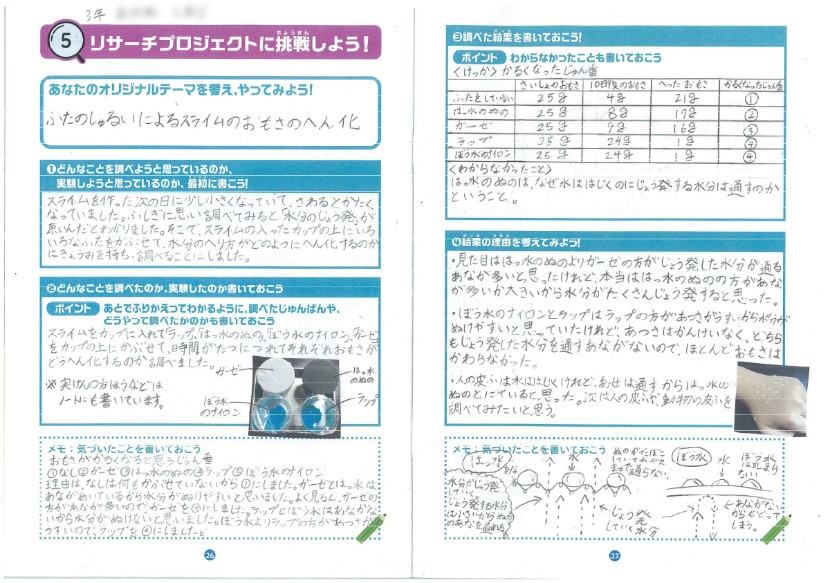 3年
5 リサーチプロジェクトに挑戦しよう!
ちょうせん
あなたのオリジナルテーマを考え、やってみよう!
ふたのしゅるいによるスライムのおもさのへん化
①どんなことを調べようと思っているのか、
実験しようと思っているのか、最初に書こう!
スライムを作った次の日に少し小さくなっていて、さわるとかたく
なっていました。ふしぎに思い調べてみると「水分のじょう発」が
原いんだとわかりました。そこで、スライムの入ったカップの上にいろ
いろなふたをかぶせて、水分のへり方がどのようにへん化するのか
にきょうみを持ち、調べることにしました。
②どんなことを調べたのか、実験したのか書いておこう
ポイント あとでふりかえってわかるように、調べたじゅんばんや、
どうやって調べたかのかも書いておこう
スライムをカップに入れて「ラップ」「はっ水のぬの」「ぼう水のナイロン」「ガーゼ」
をカップの上にかぶせて、時間がたつにつれてそれぞれおもさが
どうへん化するのか調べました。
ガーゼ
はっ水のぬの
※実けんの方ほうなどは
ノートにも書いています。
ぼう水のナイロン
ラップ
メモ:気づいたことを書いておこう
おもさがかるくなると思うじゅん番
①なし②ガーゼ③はっ水のぬの④ラップ⑤ぼう水のナイロン
理由は、なしは何もかぶせていないから①にしました。ガーゼとはっ水は
あながあいているから水分がぬけやすいと思いました。よく見ると、ガーゼの
方があなが多いのでガーゼを②にしました。ラップとぼう水はあながな
いから水分がぬけないと思いました。ぼう水よりラップの方があつさが
うすいので、ラップを④にしました。
26
③調べた結果を書いておこう!
ポイント わからなかったことも書いておこう
〈けっか〉かるくなったじゅん番
さいしょのおもさ 10日後のおもさ へったおもさ かるくなったじゅん番
ふたをしていない 25g 4g 21g ①
はっ水のぬの 25g 8g 17g ②
ガーゼ 25g 9g 16g ③
ラップ 25g 24g 1g ④
ぼう水のナイロン 25g 24g 1g ④
〈わからなかったこと〉
はっ水のぬのは、なぜ水ははじくのにじょう発する水分は通すのか
ということ。
④結果の理由を考えてみよう!
・見た目ははっ水のぬのよりガーゼの方がじょう発した水分が通る
あなが多いと思ったけれど、本当ははっ水のぬのの方があな
が多いか大きいから水分がたくさんじょう発すると思った。
・ぼう水のナイロンとラップはラップの方があつさがうすいから水分が
ぬけやすいと思っていたけれど、あつさはかんけいなく、どちら
もじょう発した水分を通すあながないので、ほとんどおもさは
かわらなかった。
・人の皮ふは水ははじくけれど、あせは通すからはっ水の
ぬのとにていると思った。次は人の皮ふや、動物の皮ふを
調べてみたいと思う。
メモ:気づいたことを書いておこう
はっ水
水
水分がじょう発
していく。
じょう発する水分
は小さいからぬの
のあなを通れる
じょう発
していく水分
ぼう水
水
あながない
からもどって
しまう。
27